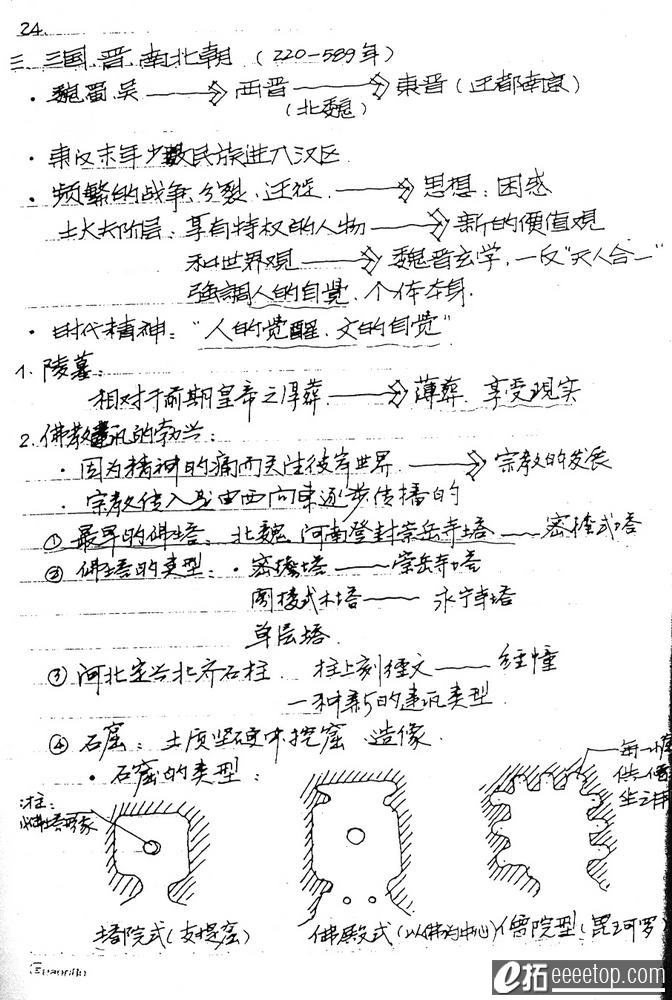 24.
三. 三国.晋.南北朝 (220-589年)
· 魏蜀.吴 → 西晋 → 東晋 (迁都南京)
(北魏)
· 東汉末年少数民族进入汉区
· 频繁的战争.分裂.迁徙. → 思想: 困惑
士大夫阶层: 享有特权的人物 → 新的價值观
和世界观 → 魏晋玄学, 一反"天人合一"
強調人的自觉. 个体本身.
· 时代精神: "人的觉醒、文的自觉"
1. 陵墓:
相对于前期皇帝之厚葬. → 薄葬. 享受现实
2. 佛教建筑的勃兴:
· 因为精神的痛而关注彼岸世界. → 宗教的发展
· 宗教传入是由西向東逐步传播的
① 最早的砖塔: 北魏. 河南登封嵩岳寺塔 — 密檐式塔
② 佛塔的类型: · 密檐塔 — 嵩岳寺塔
阁楼式木塔 — 永宁寺塔
单层塔.
③ 河北定兴北齐石柱. 柱上刻经文 — 经幢
一种新的建筑类型.
④ 石窟: 土质坚硬中挖窟.造像.
· 石窟的类型:
每一小窟
供一僧
坐之用
塔院式(支提窟)
佛殿式(以佛为中心)
僧院型(毘珂罗
e拓 eeeetop.com